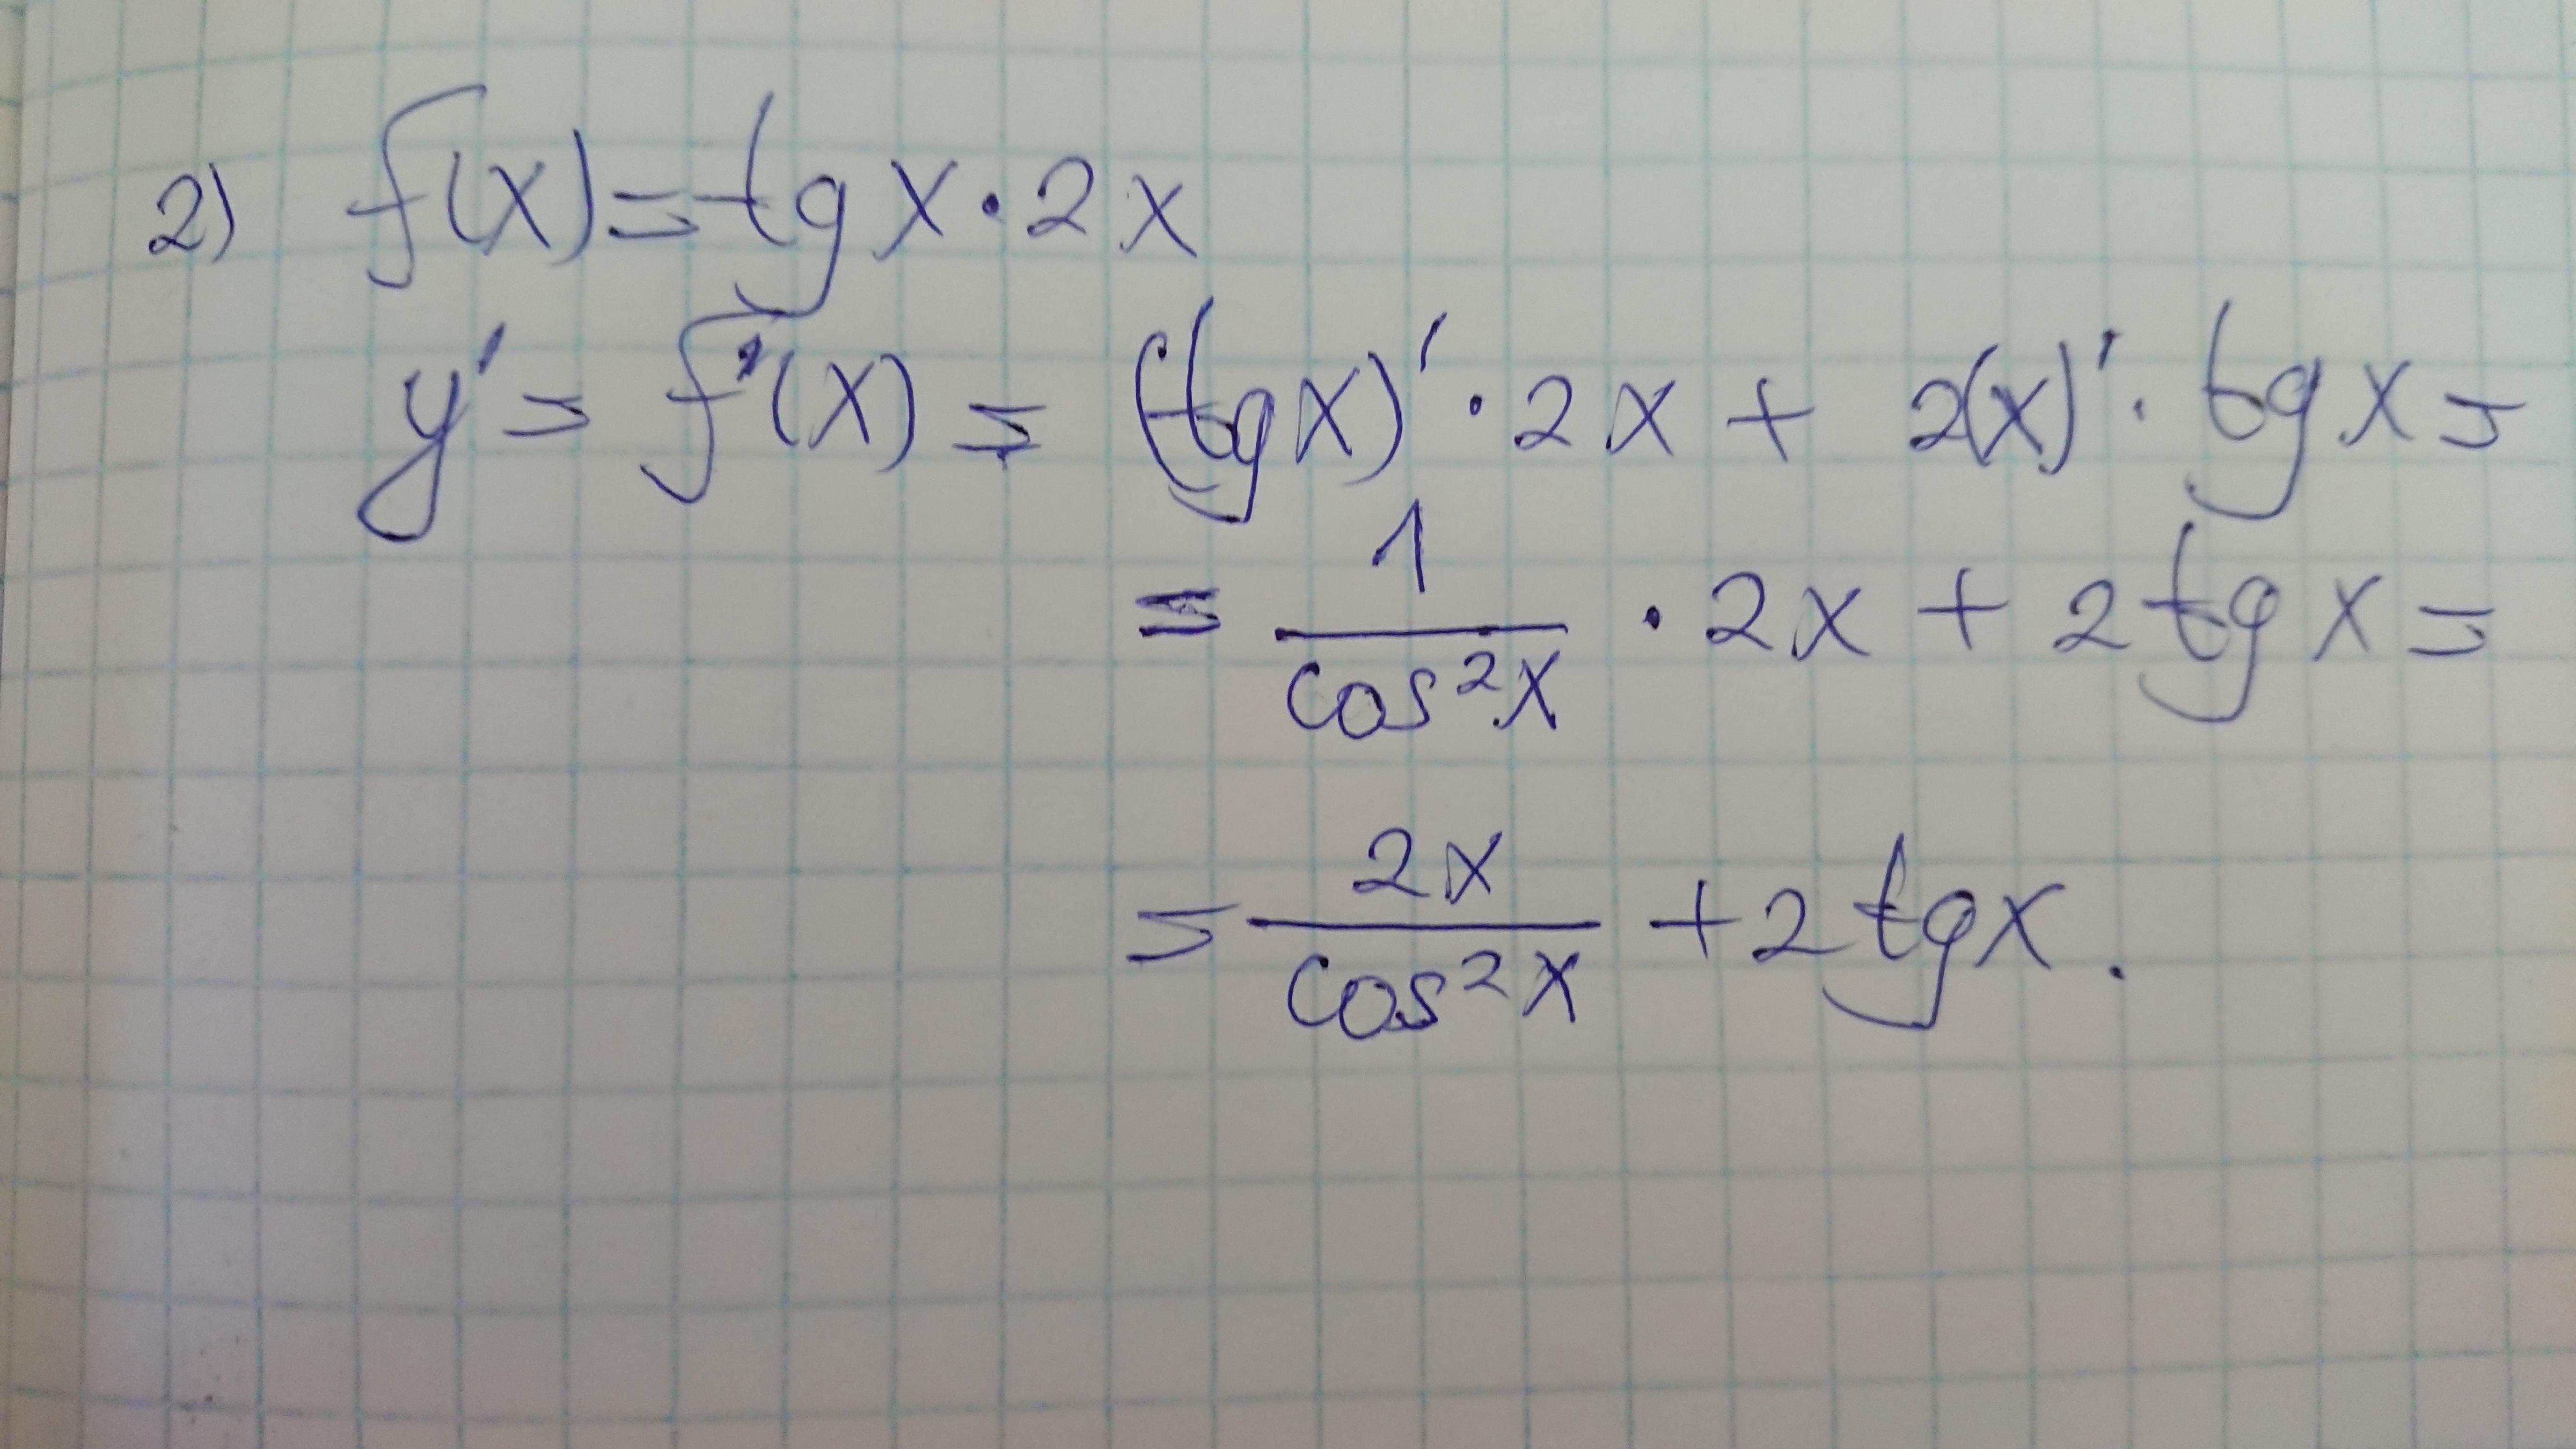 2) f(x)=tg x·2x
y'= f'(x)= (tg x)'·2x + 2(x)'·tg x=
= 1/cos²x ·2x+2tg x=
= 2x/cos²x +2tgx.